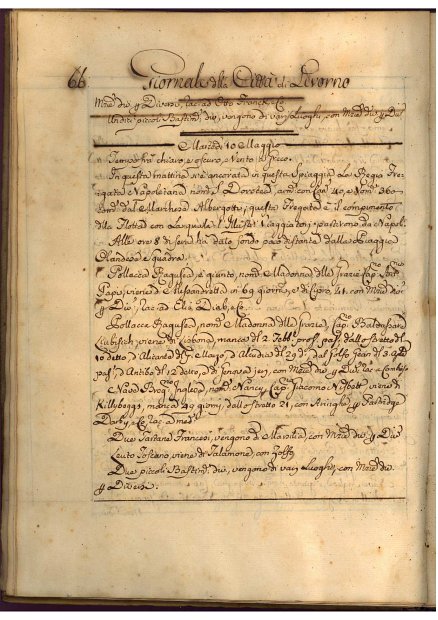 66. Giornale della Città di Livorno
Merc. div. p Diversi, rac. ad Otto Franck, e C.
Undici piccoli Bastim. div. vengono di varj Luoghi, con Merc. div. p Div.
Martedì 10 Maggio
Tempo frà chiaro, e oscuro, Vento a Greco.
In questa mattina si è ancorata in questa Spiaggia La Regia Fre-
gata Napoletana nom. S. Dorotea, arm. con Can. 40, e Uom. 360
com. dal Marchese Albergotti; questa Fregata è il compimento
della Flotta con La quale l'Illustri Viaggiatori partirono da Napoli.
Alle ore 8 di sera ha dato fondo poco distante dalla Spiaggia
Olandese e quadra.
Pollacca Ragusea, è giunto, nom. Madonna delle Grazie, Cap.
Papi, viene d'Alessandretta in 69 giorni, e di Cipro, 41. con Merc. div.
p Div. rac. ad Elia Diab, e C.
Pollacca Ragusea, nom. Madonna delle Grazie, Cap. Baldassare
Lubissich, viene di Lisbona, manca dal 2 Febb. pros. pas. dallo Stretto dl
10 detto, d'Alicante dl Marzo, d'Alcudia dl 29 d. dal Golfo Jean dl 3 Aple
pas. d'Antibo dl 12 detto, e di Genova jeri, con Merc. div. p Div. rac. a
Nave Brig. Inglese, nom. Nancy, Cap. Giacomo Nesbott, viene di
Killybeggs, manca 49 giorni, dallo Stretto 21, con Aringhe p Partridge
Darby, e C. rac. a med.
Due Tartane Francesi, vengono di Marsilia, con Merc. div. p Div.
Leuto Toscano, viene di Talamone, con Zolfo.
Due piccoli Bastim. div. vengono di varj Luoghi, con Merc. div.
p Diversi.